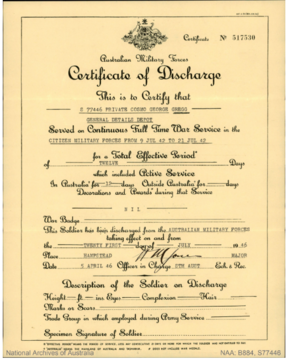 Certificate Nº 517530
Australian Military Forces
Certificate of Discharge
This is to Certify that
S 77446 PRIVATE COSMO GEORGE GREGG
GENERAL DETAILS DEPOT
Served on Continuous Full Time War Service in the
CITIZEN MILITARY FORCES FROM 9 JUL 42 TO 21 JUL 42
for a Total Effective Period
of TWELVE Days
which included Active Service
In Australia for 12 days Outside Australia for days
Decorations and Awards during that Service
NIL
War Badge
This Soldier has been discharged from the AUSTRALIAN MILITARY FORCES
taking effect on and from
the day of JULY
Place HAMPSTEAD MAJOR
Date 5 APRIL 46 Officer in Charge Ech. & Rec.
Description of the Soldier on Discharge
Height ft ins Eyes Complexion Hair
Marks or Scars
Trade Group in which employed during Army Service
Specimen Signature of Soldier
National Archives of Australia NAA: B884, S77446